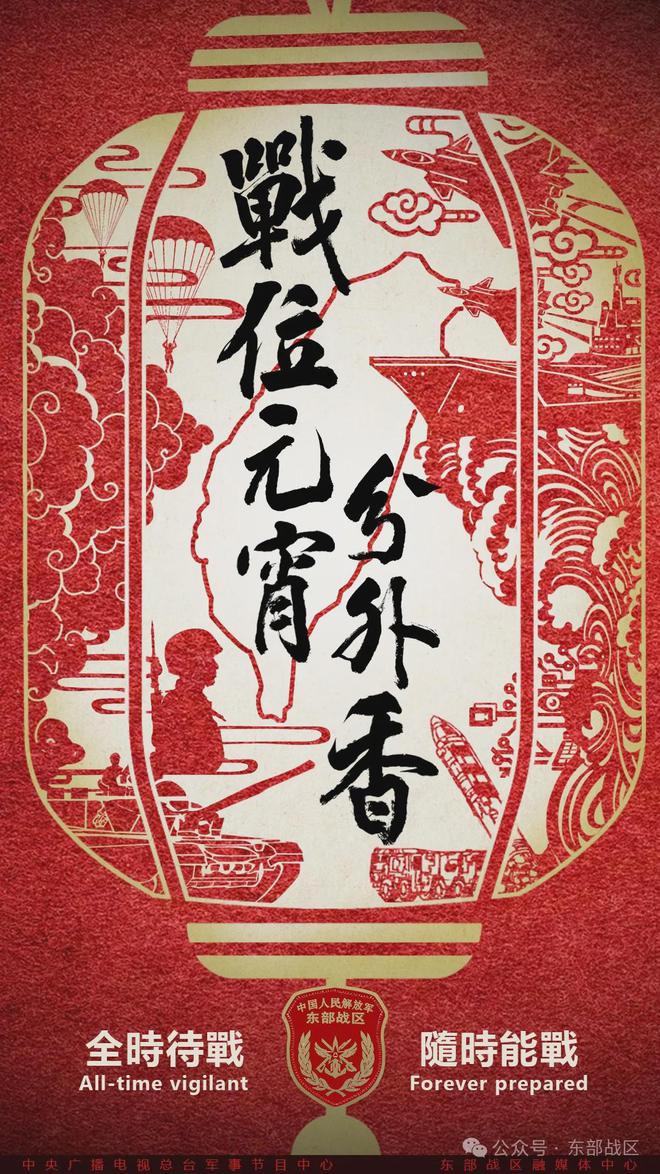 戰位元宵
分外香
中国人民解放军
东部战区
全時待戰
All-time vigilant
隨時能戰
Forever prepared
公众号 · 东部战区
中央广播电视总台军事节目中心
东部战区融媒体中心